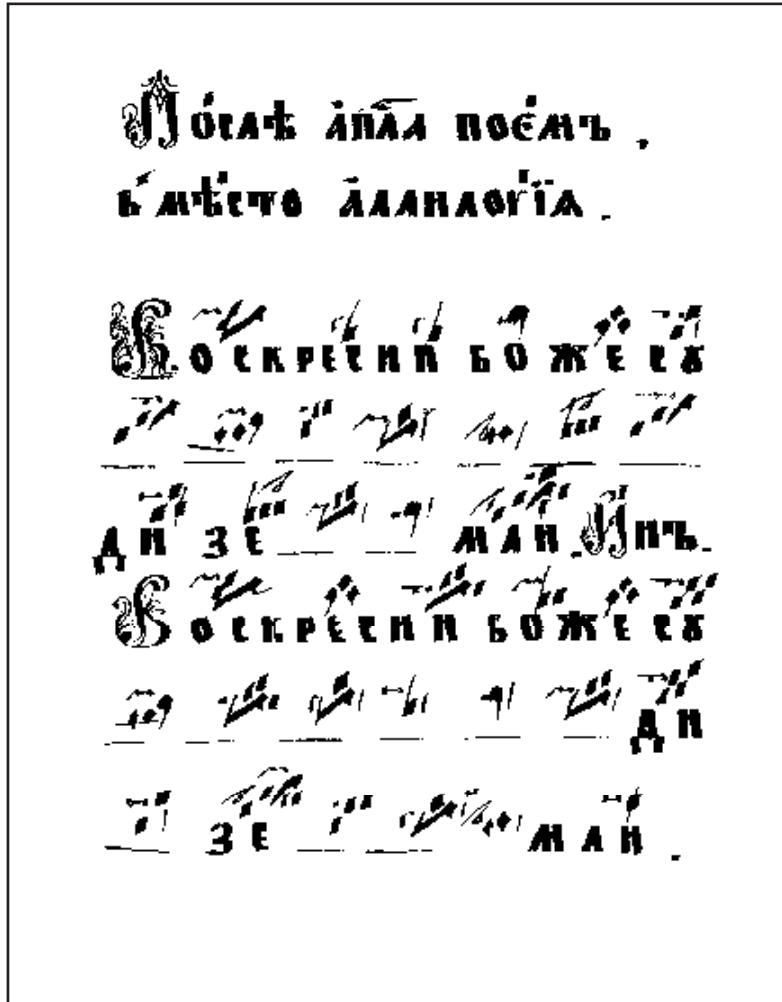 По́слѣ а҆пⷭ҇ла пое́мъ .
в мѣ́сто а҆ллилогі́ѧ .
Воскресни божесꙋ
ди зе мли . Инъ .
Воскресни божесꙋ
ди
зе мли .